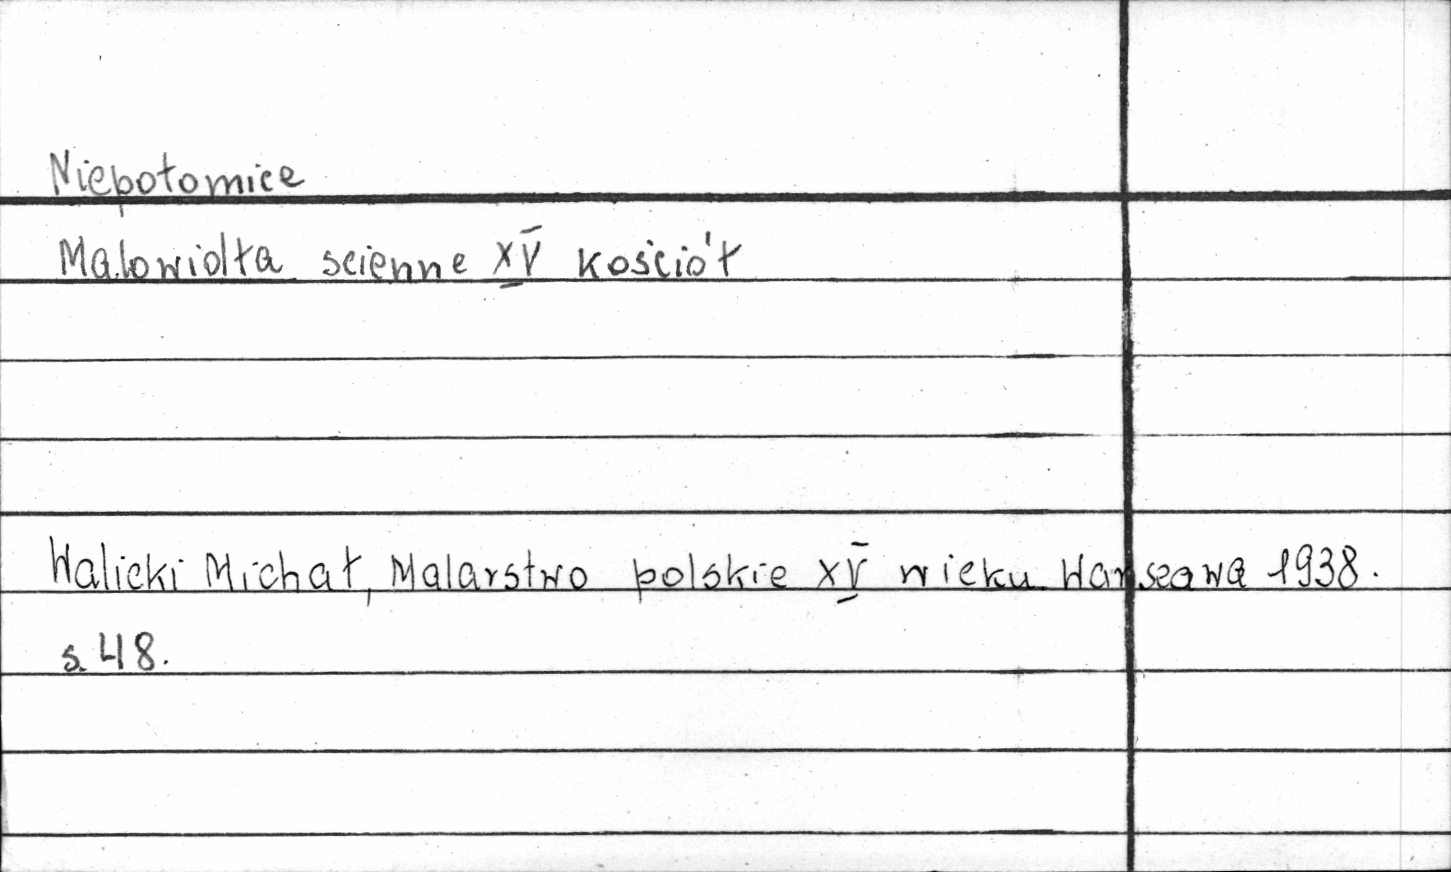 Niepołomice
Malowidła scienne XV kościół
Walicki Michał, Malarstwo polskie XV wieku Warszawa 1938.
s. 48.